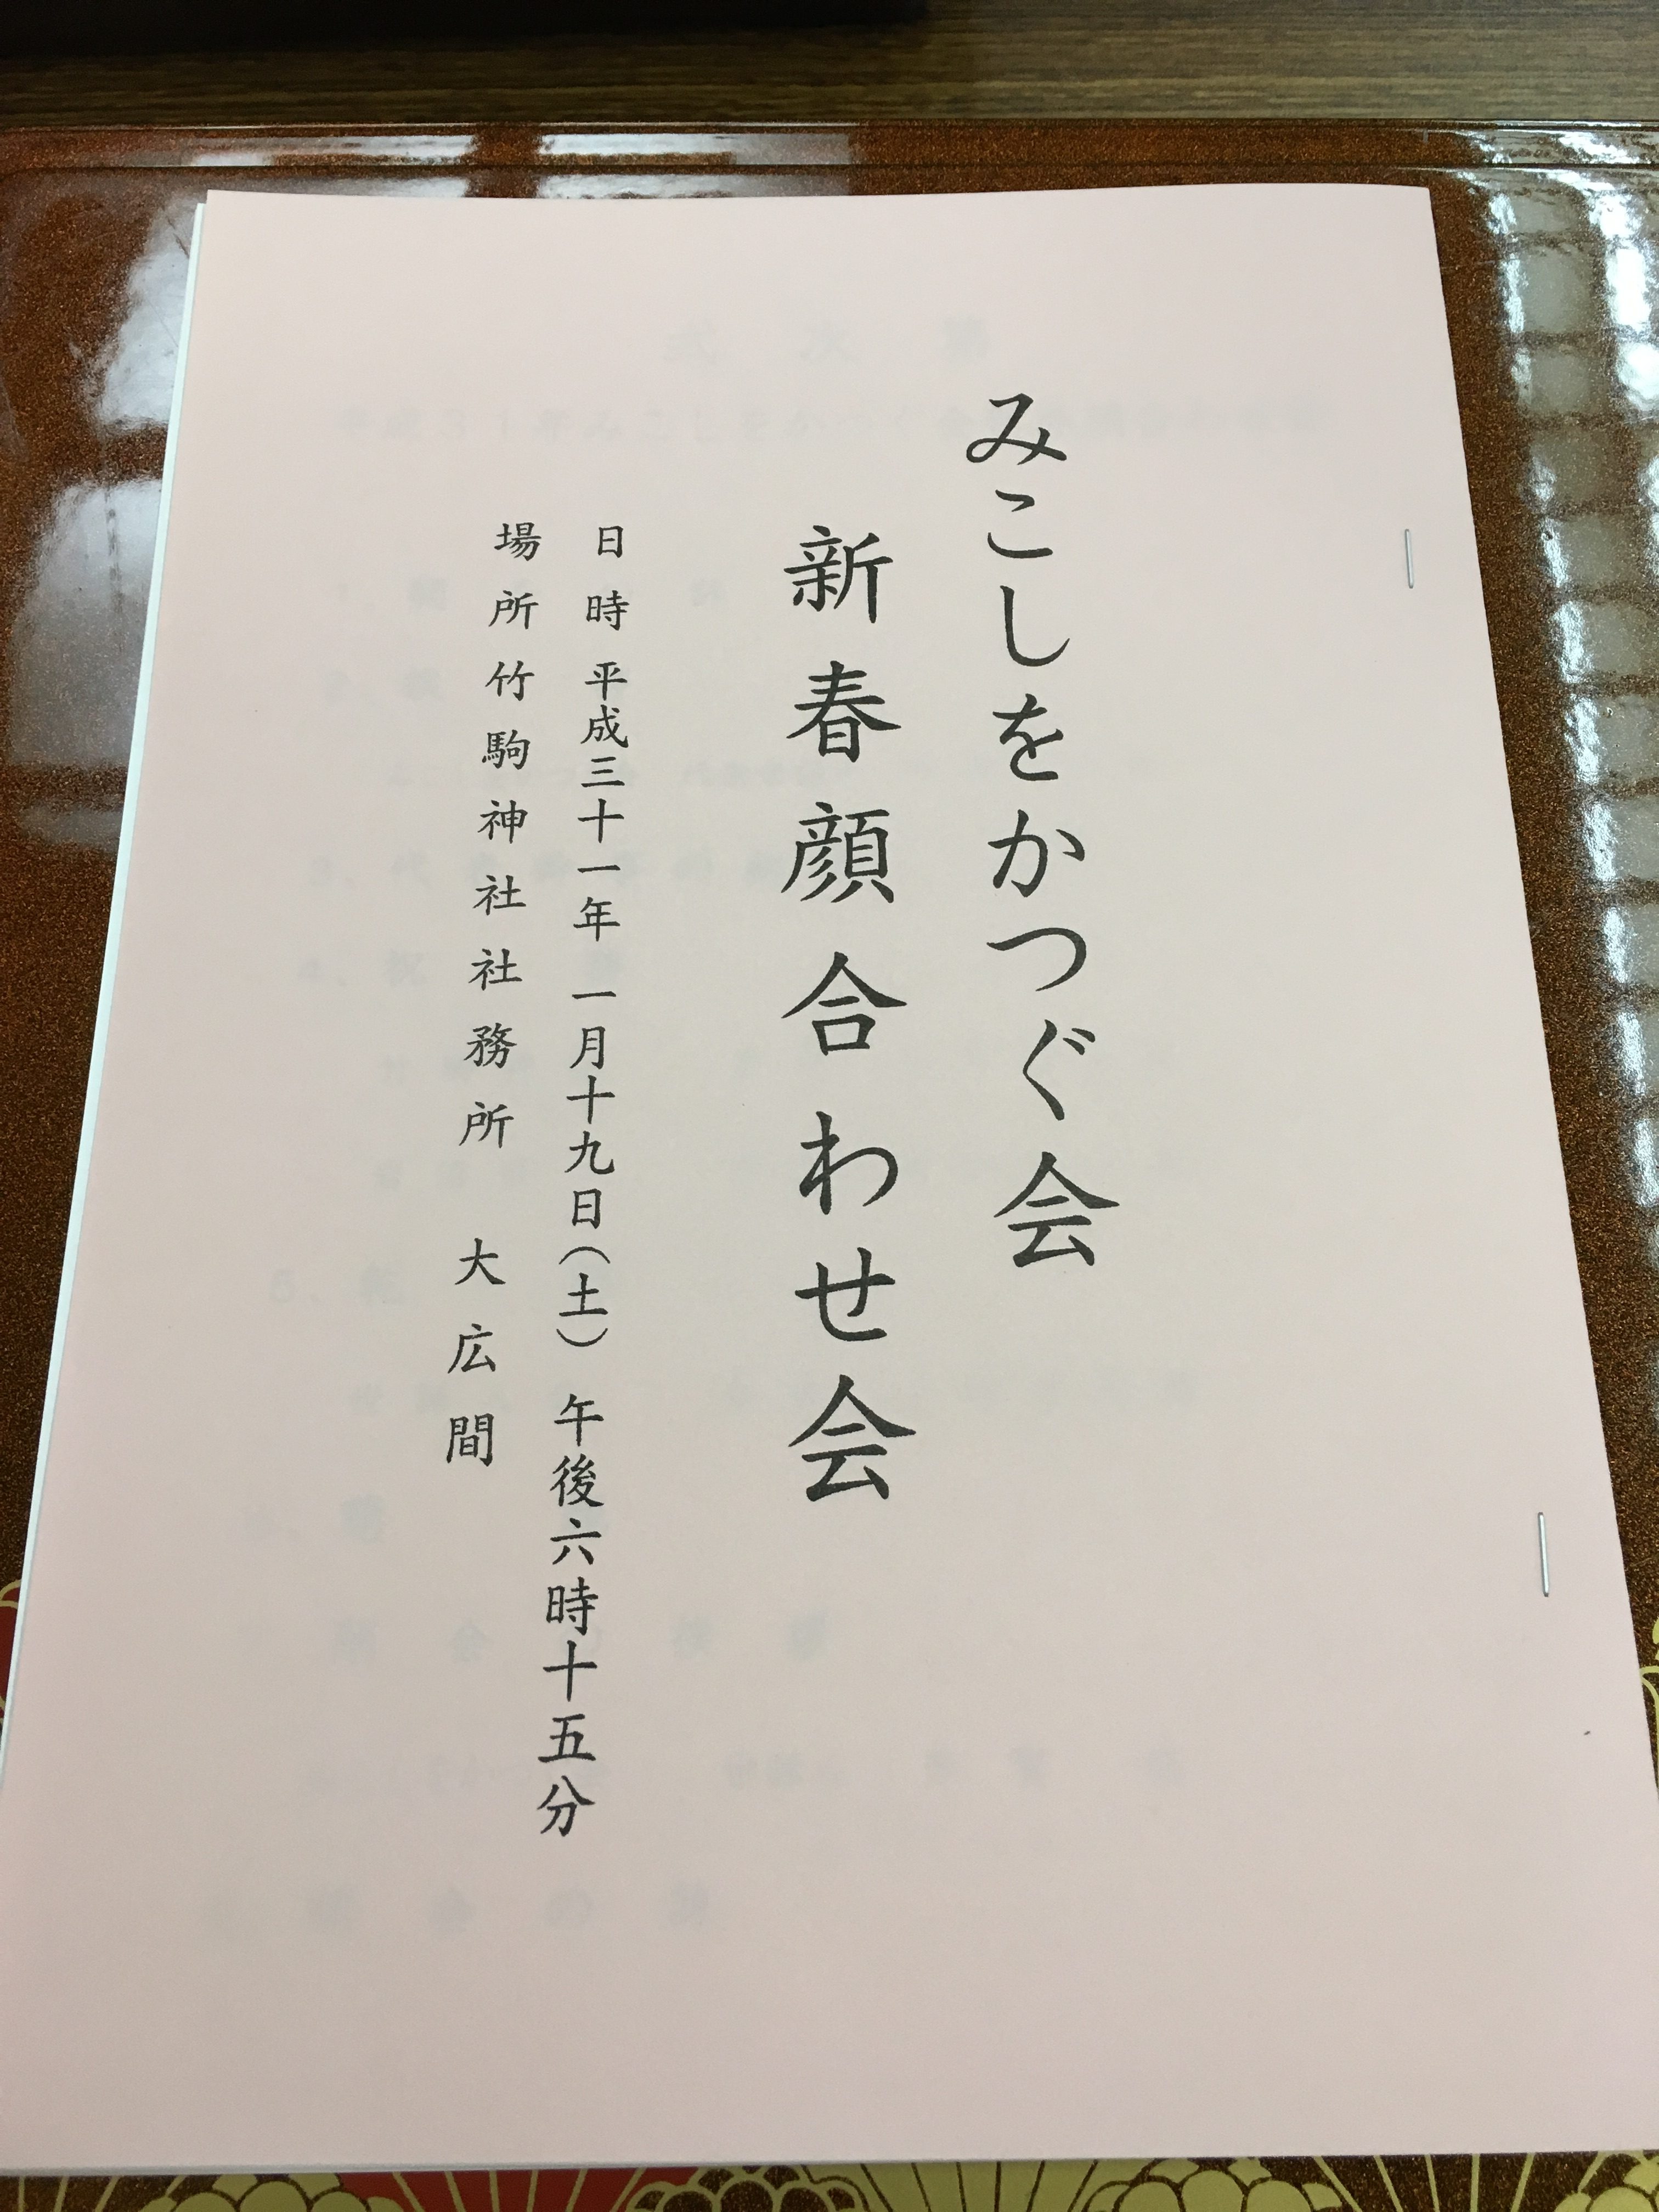 みこしをかつぐ会
新春顔合わせ会
日時 平成三十一年一月十九日（土） 午後六時十五分
場所 竹駒神社社務所 大広間